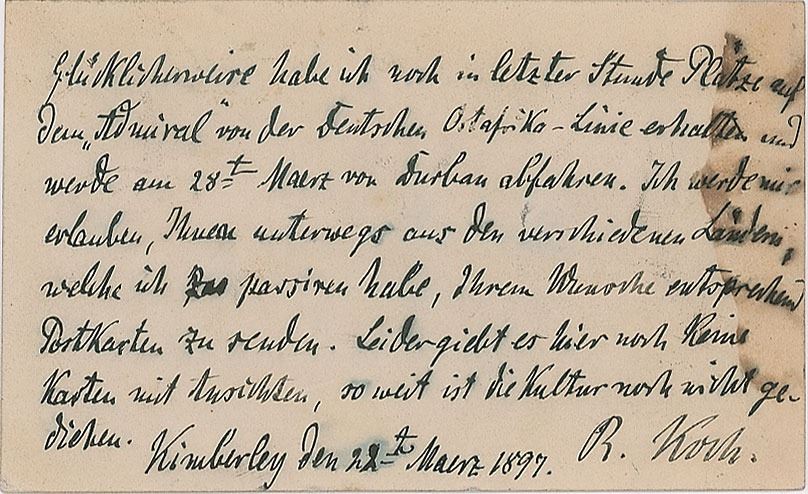 Glücklicherweise habe ich noch in letzter Stunde Plätze auf
dem „Admiral“ von der Deutschen Ostafrika-Linie erhalten und
werde am 28t Maerz von Durban abfahren. Ich werde mir
erlauben, Ihnen unterwegs aus den verschiedenen Ländern,
welche ich zu passiren habe, Ihrem Wunsche entsprechend
Postkarten zu senden. Leider giebt es hier noch keine
Karten mit Ansichten, so weit ist die Kultur noch nicht ge-
diehen.
Kimberley den 22t Maerz 1897. R. Koch.